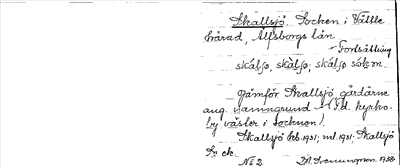 Skallsjö. Socken i Vättle
härad, Älfsborgs län
Fortsättning
skálʃø, skàlʃø; skálʃø sókən.
Jämför Skallsjö, gårdarne
ang. namngrund (f.d. kyrko-
by väster i socknen).
Skallsjö hrb. 1931; ml. 1931; Skallsjö
Sn ek.
No 2